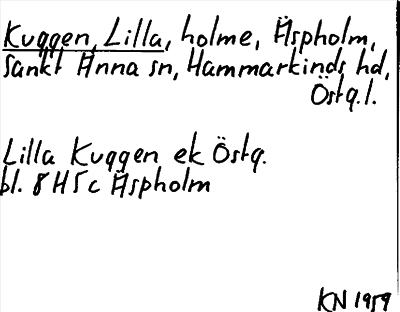 Kuggen, Lilla, holme, Äspholm,
Sankt Anna sn, Hammarkinds hd,
Östg.l.
Lilla Kuggen ek Östg.
bl. 8 H 5 c Äspholm
KN 1959